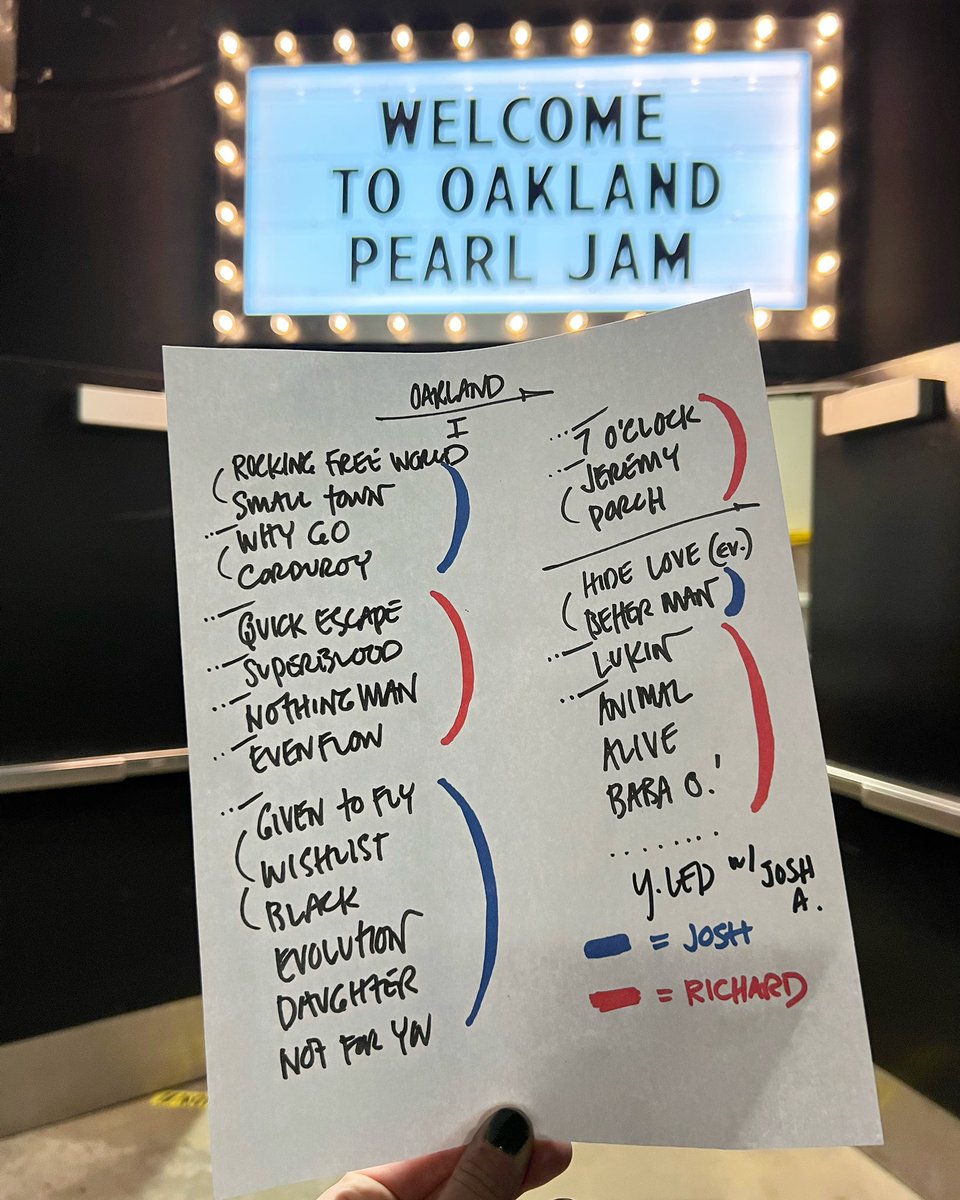 WELCOME
TO OAKLAND
PEARL JAM
OAKLAND
I
ROCKING FREE WORLD
SMALL TOWN
WHY GO
CORDUROY
QUICK ESCAPE
SUPERBLOOD
NOTHINGMAN
EVENFLOW
GIVEN TO FLY
WISHLIST
BLACK
EVOLUTION
DAUGHTER
NOT FOR YOU
7 O'CLOCK
JEREMY
PORCH
HIDE LOVE (EV.)
BETTER MAN
LUKIN
ANIMAL
ALIVE
BABA O.'
Y. LED W/ JOSH
A.
= JOSH
= RICHARD